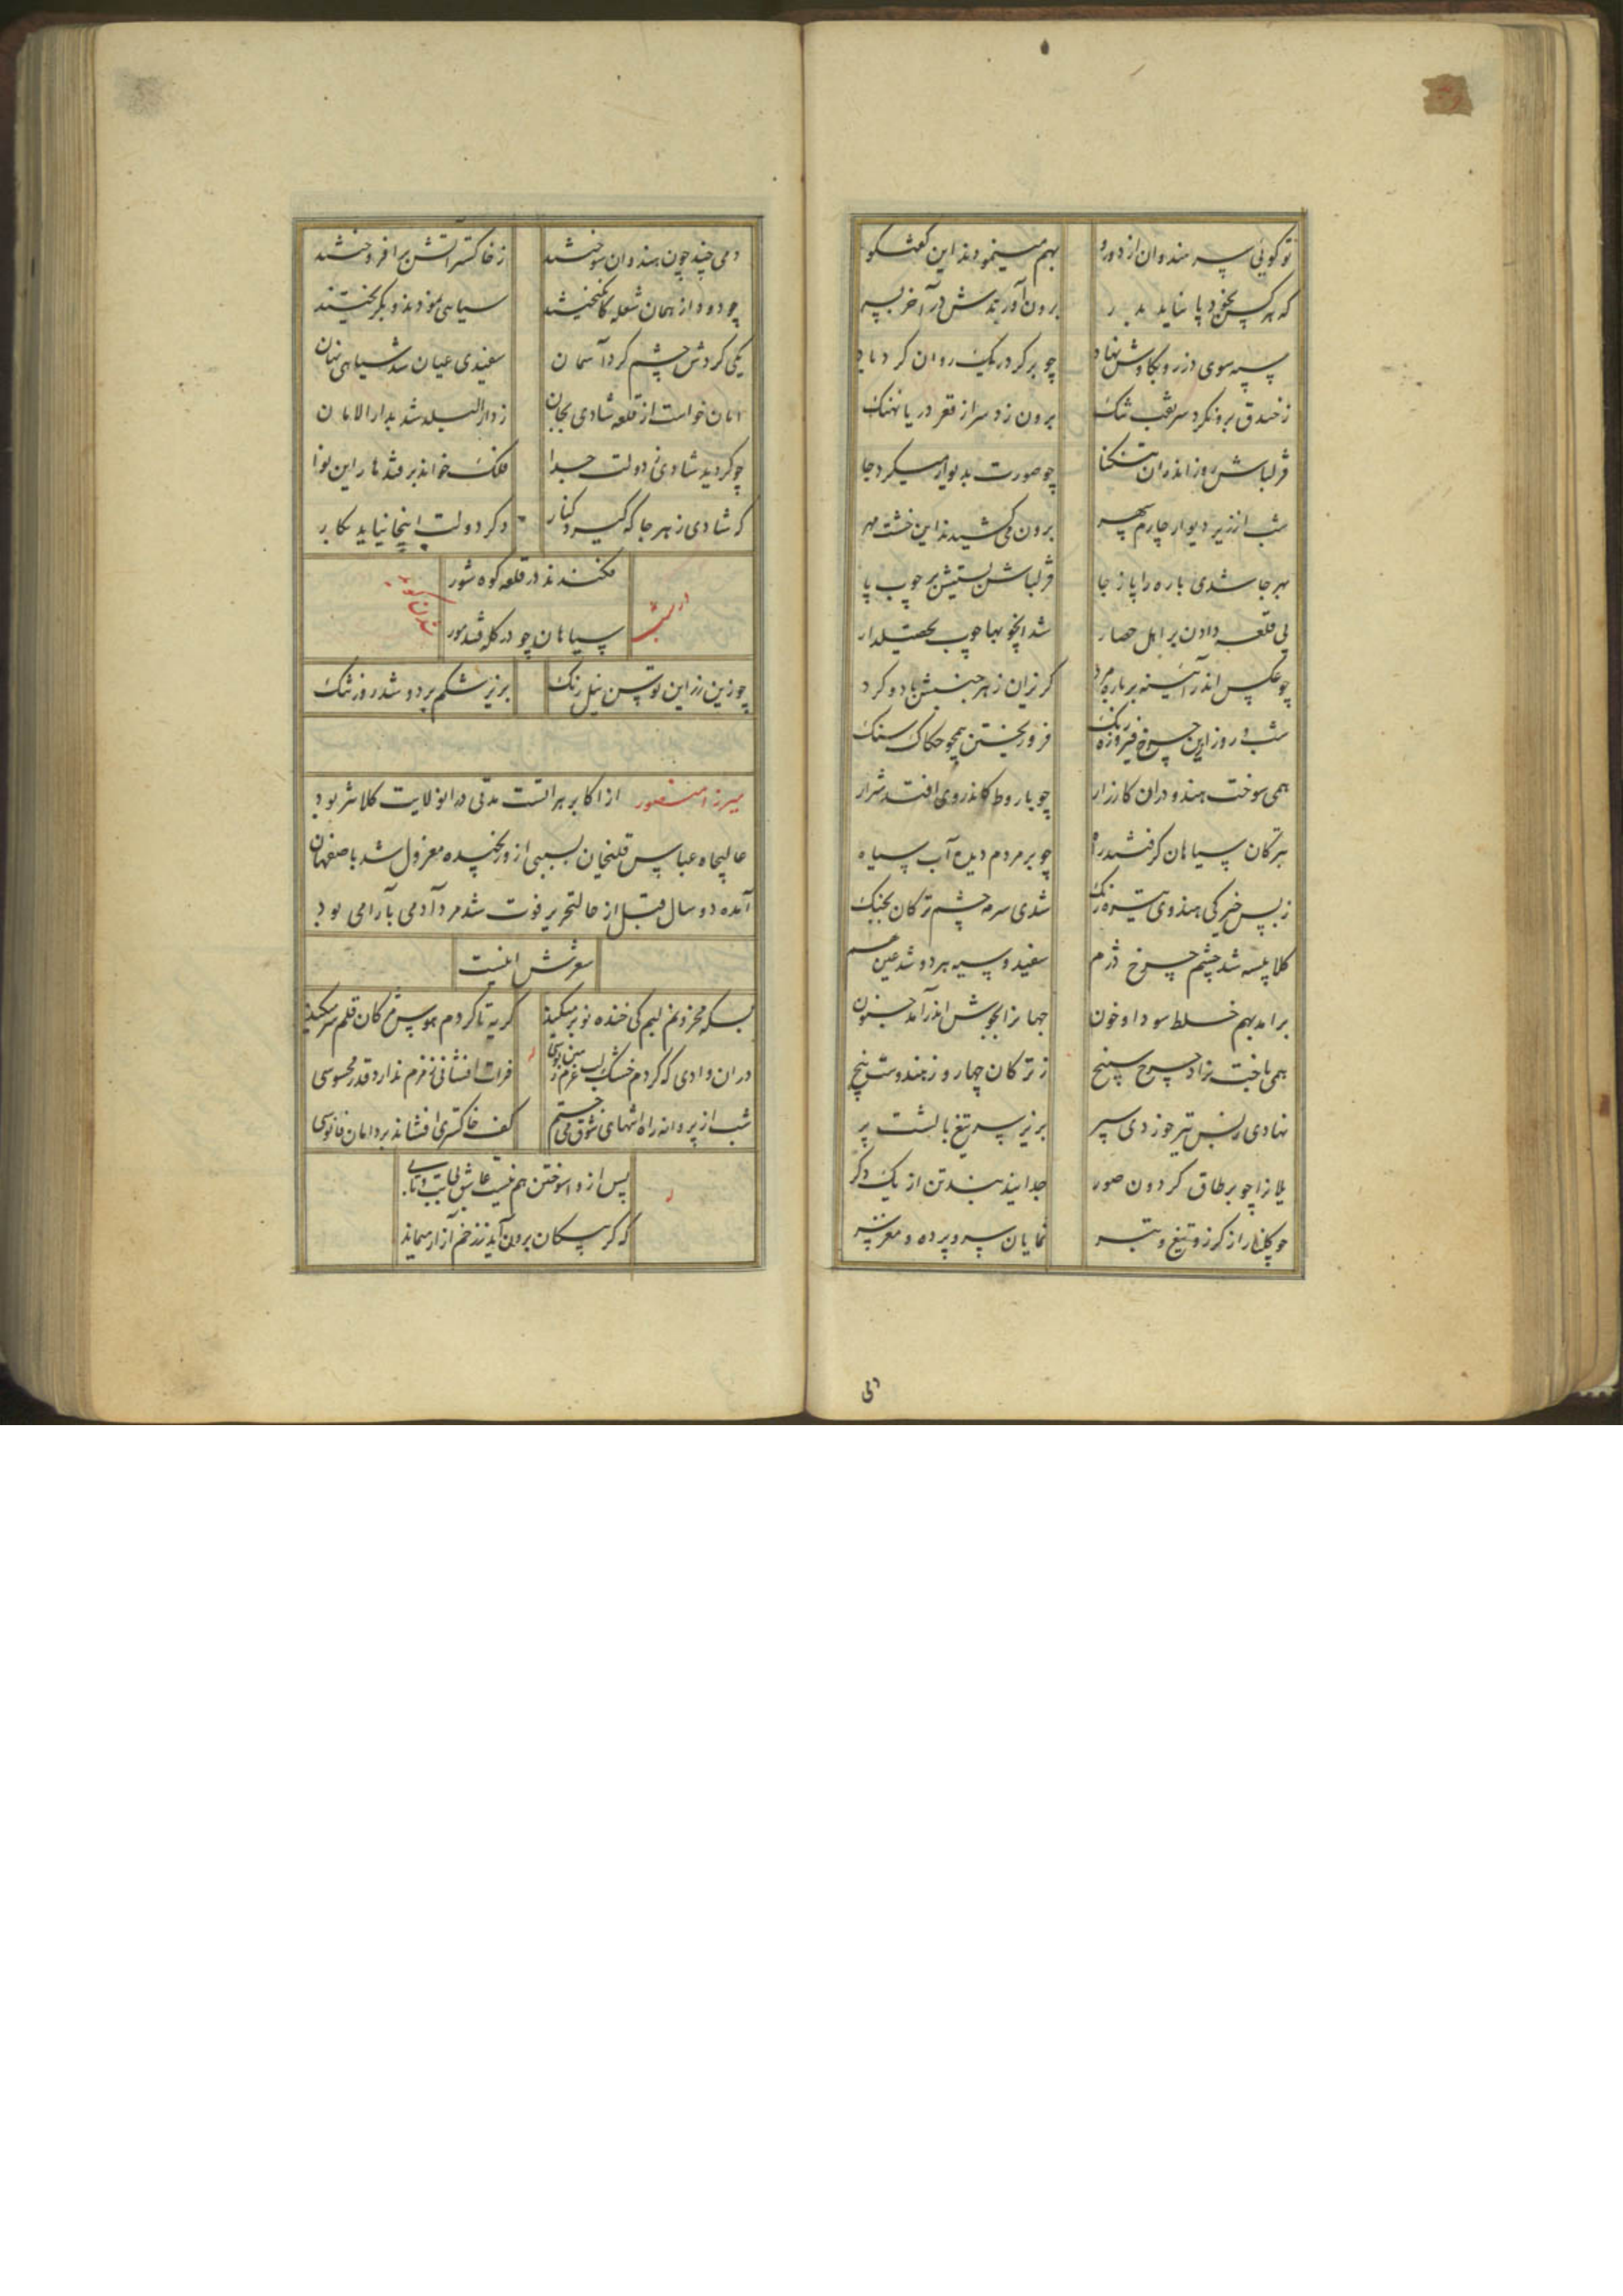 تو گویی سر هندوان از دورو بهم مینمودند این گفتگو
که هر کس بخود پا نیاید بدر برون آورندش در آخر بسر
سپه سوی دز رو بکاوش نهاد چو بر گرد ریک روان گردباد
ز خندق برون کرد سر نقب تنک برون زد سر از قعر دریا نهنک
قزلباش روز اندران تنکنا چو صورت بدیوار میکرد جا
شب از زیر دیوار چارم سپهر برون می کشیدند این خشت مهر
بهر جا شدی باره را پا ز جا قزلباش بستیش بر چوب پا
پی قلعه دادن بر اهل حصار شد انچوبها چوب تحصیلدار
چو عکس اندر آئینه بر باره مرد کریزان ز هر جنبش باد و کرد
شب و روز این چرخ فیروزه رنک فرو ریختن همچو حکاک سنک
همی سوخت هندو دران کارزار چو باروط کاندروی افتد شرار
بترکان سیاهان کرفتند راه چو بر مردم دیده آب سیاه
ز بس خیرکی هندوی تیره رنک شدی سرمه چشم ترکان بجنک
کلاپیسه شد چشم چرخ دژم سفید و سیه هر دو شد عین هم
برامد بهم خلط سودا و خون جهانرا بجوش اندر آمد جنون
همی باخت نراد چرخ سپنج ز ترکان چهار و ز هندوش پنج
نهادی ز بس تیر خوردی سپر بزیر سر تیغ بالشت پر
یلانرا چو بر طاق کردون صور جدا بند بند تن از یک دکر
چو کلنار از کرز و تیغ و تبر نمایان سر و پرده و مغز سر
دمی چند چون هندوان سوختند ز خاکستر آتش برافروختند
چو دود از همان شعله کانکیختند سیاهی نمودند و بکریختند
یکی کردش چشم کرد آسمان سفیدی عیان شد سیاهی نهان
امان خواست از قلعه شادی بجان ز دار البله شد بدار الامان
چو کردید شادی ز دولت جدا فلک خواند بر قندهار این نوا
که شادی ز هر جا که کیرد کنار دکر دولت اینجا نیاید بکار
فکندند در قلعه کوه شور
سپاهان چو در کله قند مور
چو زین زر این توسن نیل رنک بزیر شکم برد و شد روز تنک
میرزا منصور از اکابر هراتست مدتی در انولایت کلانتر بود
عالیجاه عباسقلیخان بسببی ازو رنجیده معزول شد باصفهان
آمده دو سال قبل از حالتحریر فوت شد مرد آدمی بآرامی بود
شعرش اینست
بسکه محزونم لبم کی خنده نوبر میکند کریه تا کردم هوس مژکان قلم سر میکند
دران وادی که کردم خشک لب عزم زمین بوسی فرات افشانی مژکانم ندارد قدر محسوسی
شب از پروانه راه انتهای شوق می جستم کف خاکستری افشاند بر دامان فانوسی
پس از واسوختن هم نیست عاشق بیتب و تابی
که کر پیکان برون آید ز زخم آزار میماند
لی